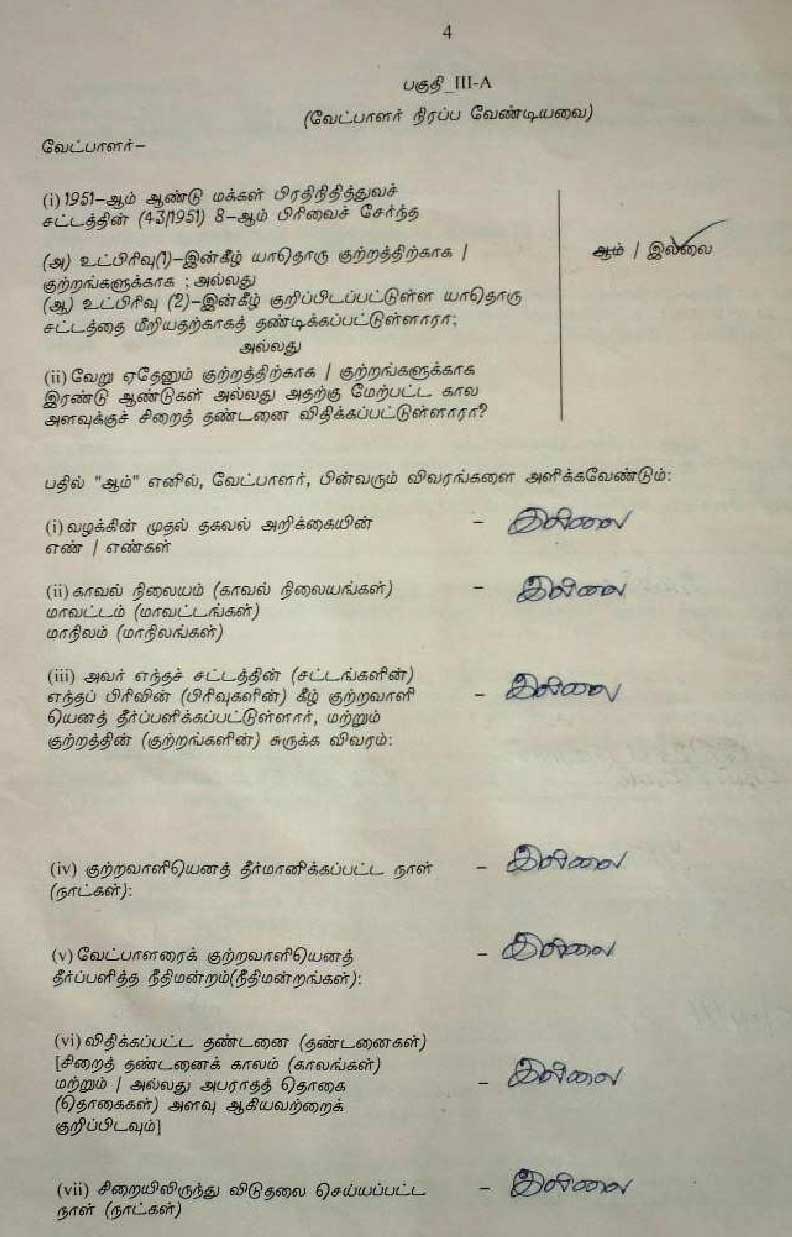 4
பகுதி_III-A
(வேட்பாளர் நிரப்ப வேண்டியவை)
வேட்பாளர்–
(i) 1951–ஆம் ஆண்டு மக்கள் பிரதிநிதித்துவச்
சட்டத்தின் (43/1951) 8–ஆம் பிரிவைச் சேர்ந்த
(அ) உட்பிரிவு(1)–இன்கீழ் யாதொரு குற்றத்திற்காக | ஆம் | இல்லை
குற்றங்களுக்காக ; அல்லது
(ஆ) உட்பிரிவு (2)–இன்கீழ் குறிப்பிடப்பட்டுள்ள யாதொரு
சட்டத்தை மீறியதற்காகத் தண்டிக்கப்பட்டுள்ளாரா;
அல்லது
(ii) வேறு ஏதேனும் குற்றத்திற்காக | குற்றங்களுக்காக
இரண்டு ஆண்டுகள் அல்லது அதற்கு மேற்பட்ட கால
அளவுக்குச் சிறைத் தண்டனை விதிக்கப்பட்டுள்ளாரா?
பதில் "ஆம்" எனில், வேட்பாளர், பின்வரும் விவரங்களை அளிக்கவேண்டும்:
(i) வழக்கின் முதல் தகவல் அறிக்கையின் – இல்லை
எண் | எண்கள்
(ii) காவல் நிலையம் (காவல் நிலையங்கள்) – இல்லை
மாவட்டம் (மாவட்டங்கள்)
மாநிலம் (மாநிலங்கள்)
(iii) அவர் எந்தச் சட்டத்தின் (சட்டங்களின்)
எந்தப் பிரிவின் (பிரிவுகளின்) கீழ் குற்றவாளி – இல்லை
யெனத் தீர்ப்பளிக்கப்பட்டுள்ளார், மற்றும்
குற்றத்தின் (குற்றங்களின்) சுருக்க விவரம்:
(iv) குற்றவாளியெனத் தீர்மானிக்கப்பட்ட நாள் – இல்லை
(நாட்கள்):
(v) வேட்பாளரைக் குற்றவாளியெனத் – இல்லை
தீர்ப்பளித்த நீதிமன்றம்(நீதிமன்றங்கள்):
(vi) விதிக்கப்பட்ட தண்டனை (தண்டனைகள்)
[சிறைத் தண்டனைக் காலம் (காலங்கள்)
மற்றும் | அல்லது அபராதத் தொகை – இல்லை
(தொகைகள்) அளவு ஆகியவற்றைக்
குறிப்பிடவும்]
(vii) சிறையிலிருந்து விடுதலை செய்யப்பட்ட – இல்லை
நாள் (நாட்கள்)